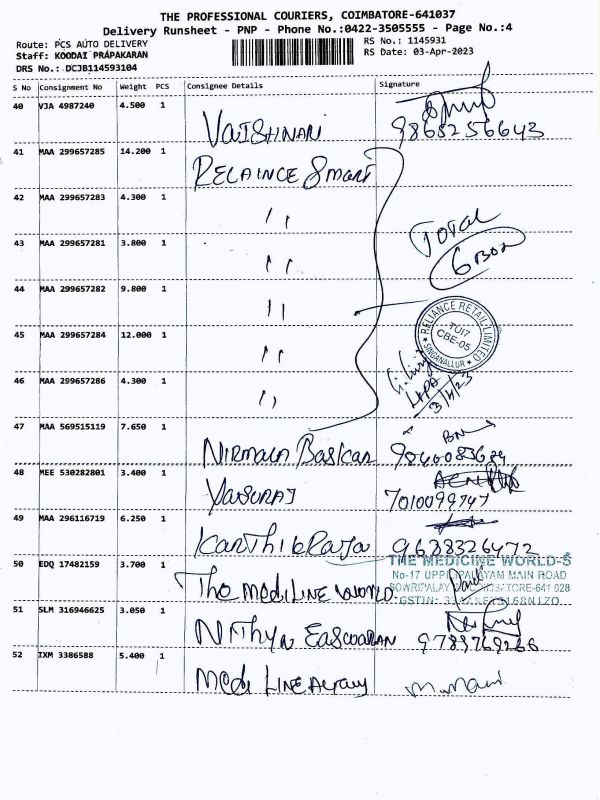 THE PROFESSIONAL COURIERS, COIMBATORE-641037
Delivery Runsheet - PNP - Phone No.:0422-3505555 - Page No.:4
Route: PCS AUTO DELIVERY
RS No.: 1145931
Staff: KOODAI PRAPAKARAN
RS Date: 03-Apr-2023
DRS No.: DCJB114593104
S No Consignment No Weight PCS Consignee Details Signature
40 VJA 4987240 4.500 1
VAISHNAVI 9865256643
41 MAA 299657285 14.200 1
RELAINCE Smart
42 MAA 299657283 4.300 1
" TOTAL
43 MAA 299657281 3.800 1
" 6 BOX
44 MAA 299657282 9.800 1
"
RELIANCE RETAIL LIMITED
TU17
CBE-05
SINGANALLUR
45 MAA 299657284 12.000 1
"
46 MAA 299657286 4.300 1
"
3/4/23
47 MAA 569515119 7.650 1
Nirmala Baskar
48 MEE 530282801 3.400 1
7010099747
49 MAA 296116719 6.250 1
KarthikRaja 9688326472
50 EDQ 17482159 3.700 1
THE MEDICINE WORLD-S
No-17 UPPILIPALAYAM MAIN ROAD
641 028
GSTIN:
The MediLINE WORLD
51 SLM 316946625 3.050 1
Nithya Easwaran 9789769266
52 IXM 3386588 5.400 1
Medi LINE